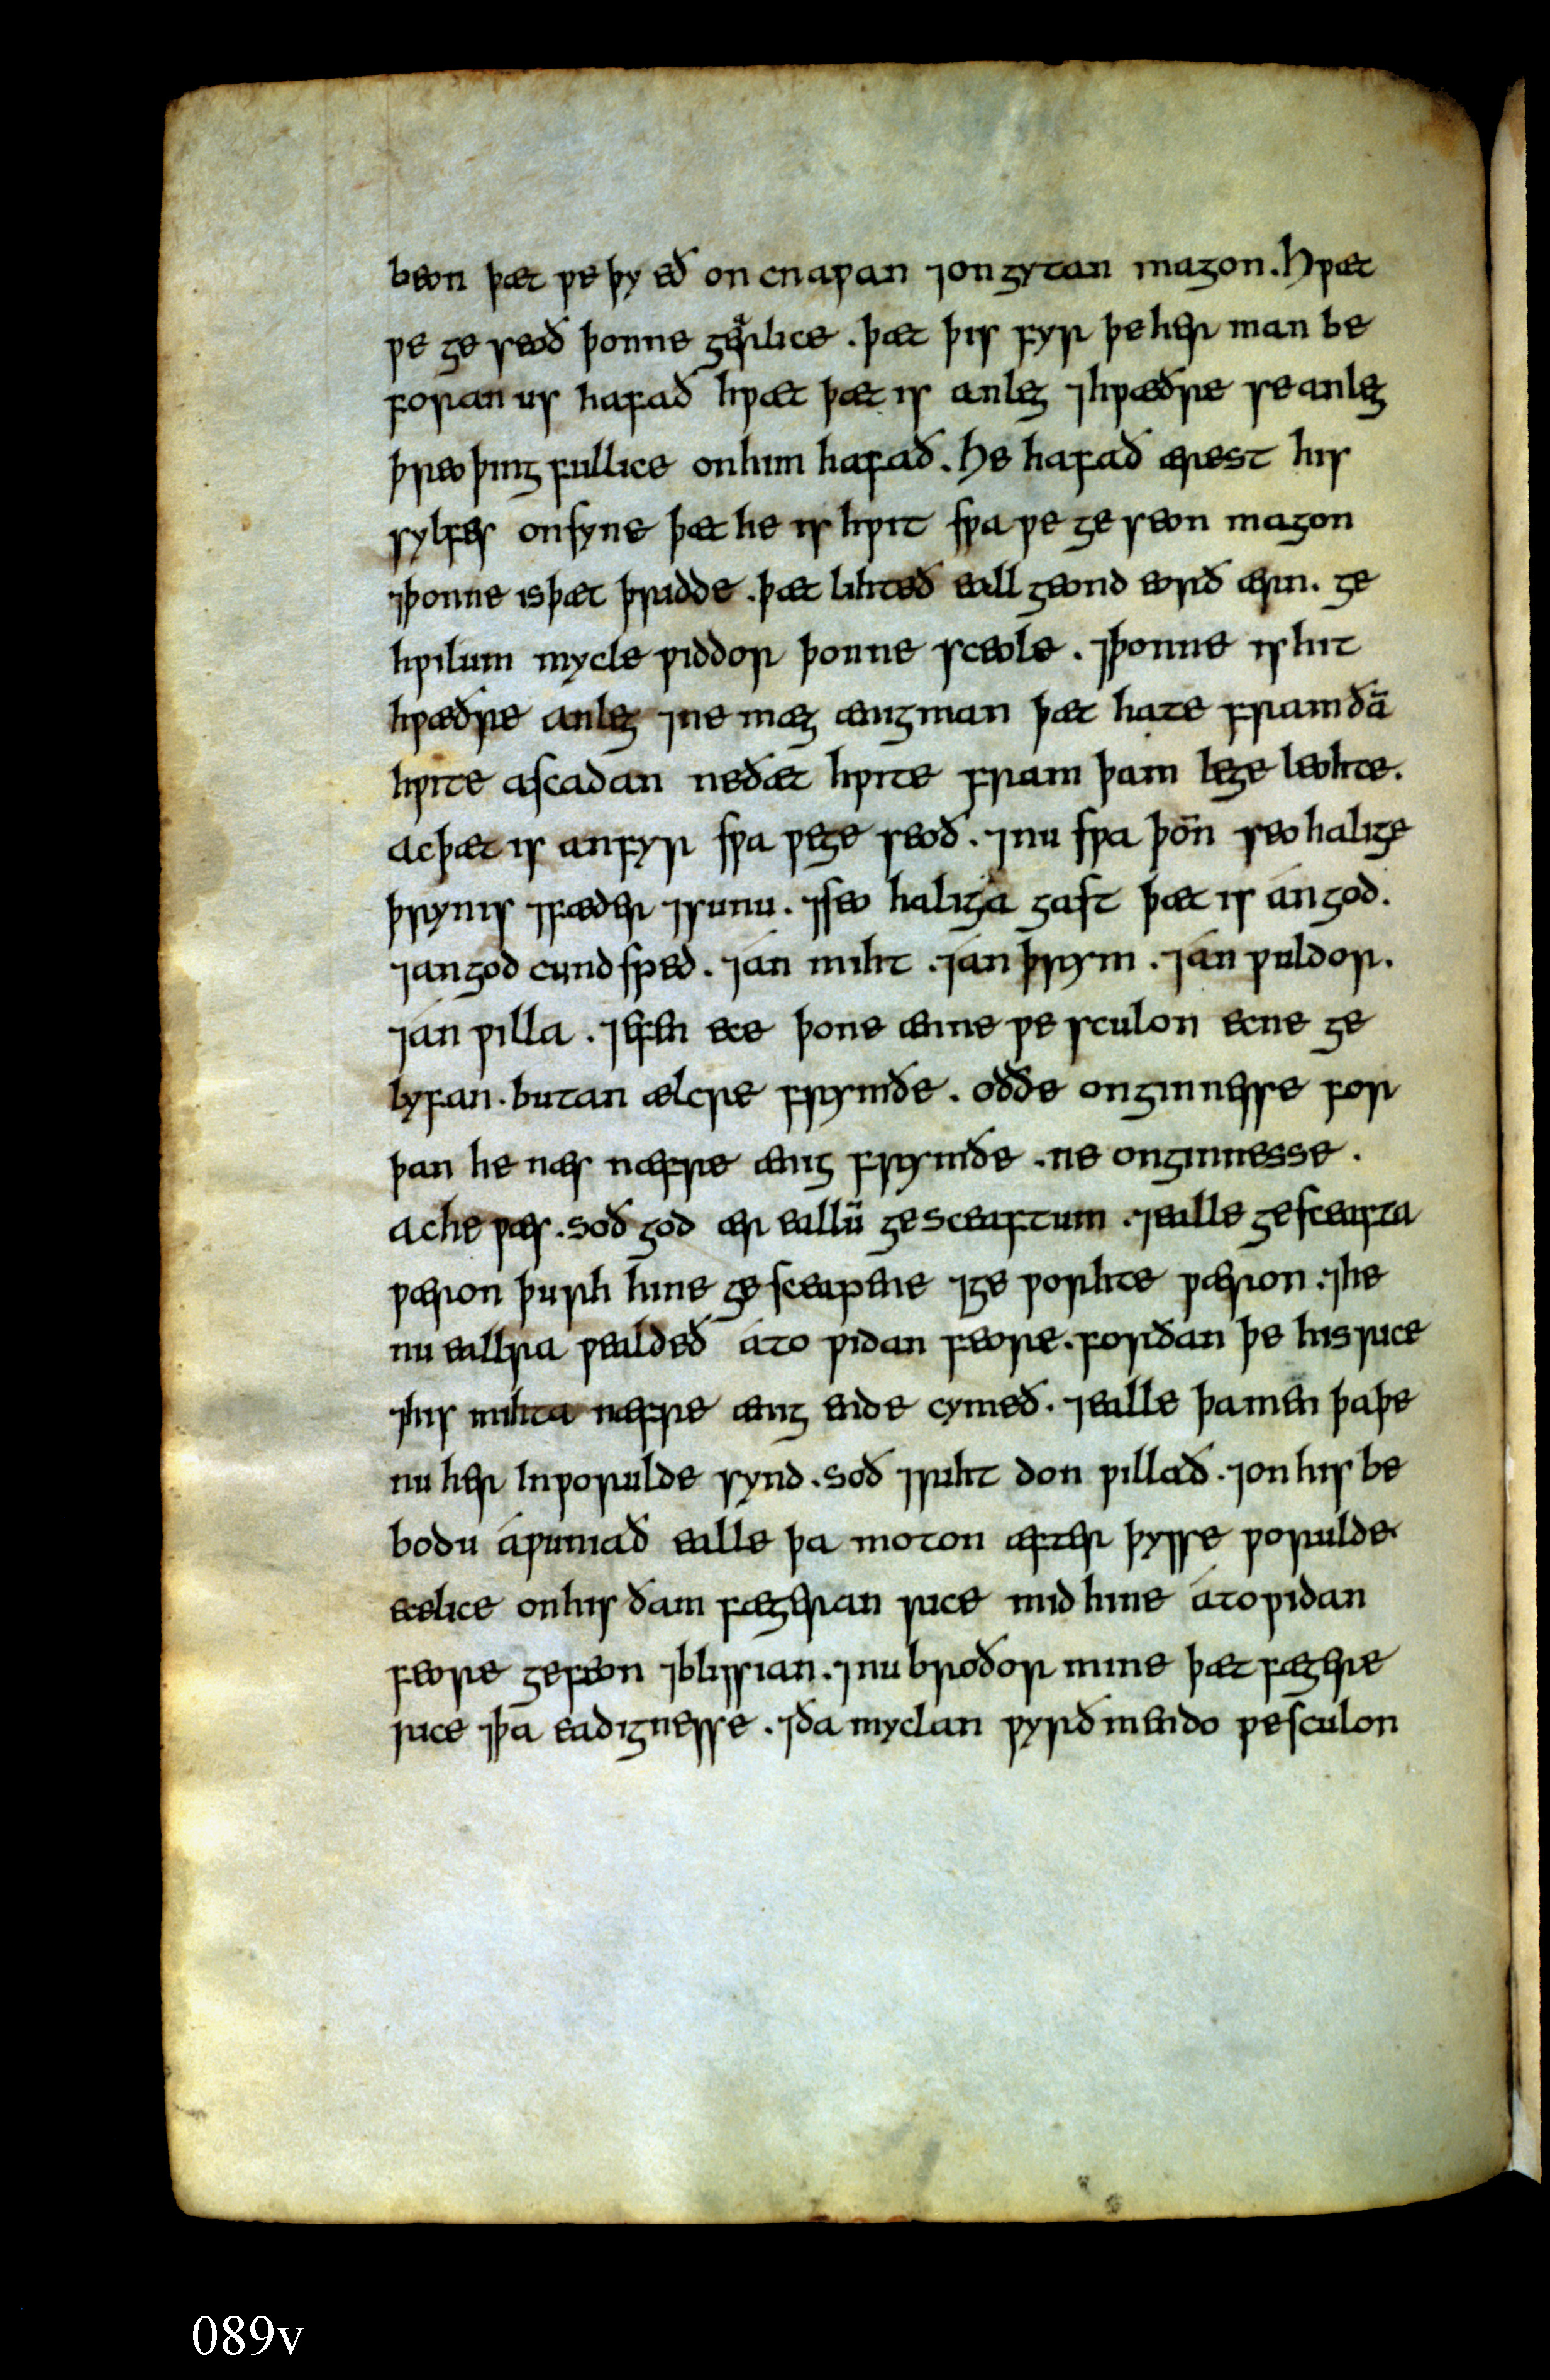 beon þæt ƿe þy eð on cnaƿan ⁊ongytan magon. Hƿæt
ƿe ge seoð þonne gęrlice. þæt þis fyr þe her man be
foran us hafað hƿæt þæt is an leg ⁊hƿæðre se an leg
þreo þing fullice onhim hafað. He hafað ærest his
sylfes onsyne þæt he is hƿit sƿa ƿe ge seon magon
⁊þonne is þæt þridde. þæt lihteð eall geond eorð ærn. ge
hƿilum mycle ƿiddor þonne sceole. ⁊þonne is hit
hƿæðre an leg ⁊ne mæg ænig man þæt hate fram ðā
hƿite ascadan ne ðæt hƿite fram þam lege leohte.
ac þæt is an fyr sƿa ƿe ge seoð. ⁊nu sƿa þoñ seo halige
þrynis ⁊fæder ⁊sunu. ⁊seo haliga gast þæt is án god.
⁊an god cund sped. ⁊án miht. ⁊án þrym. ⁊án ƿuldor.
⁊án ƿilla. ⁊efen ece þone ænne ƿe sculon ecne ge
lyfan. butan ælcre frymðe. oððe onginnesse for
þan he næs næfre ænig frymðe. ne onginnesse.
ac he ƿæs. soð god ær eallū gesceaftum. ⁊ealle gesceafta
ƿæron þurh hine ge sceapene ⁊ge ƿorhte ƿæron. ⁊he
nu eallra ƿealdeð áto ƿidan feore. forðan þe his rice
⁊his mihta næfre ænig ende cymeð. ⁊ealle þa men þa þe
nu her In ƿorulde synd. soð ⁊riht don ƿillað. ⁊on his be
bodu áƿuniað ealle þa moton æfter þysse ƿorulde
ecelice on his ðam fægeran rice mid hine áto ƿidan
feore gefeon ⁊blissian. ⁊nu broðor mine þæt fægere
rice ⁊þa eadignesse. ⁊ða myclan ƿyrðmendo ƿe sculon
089v